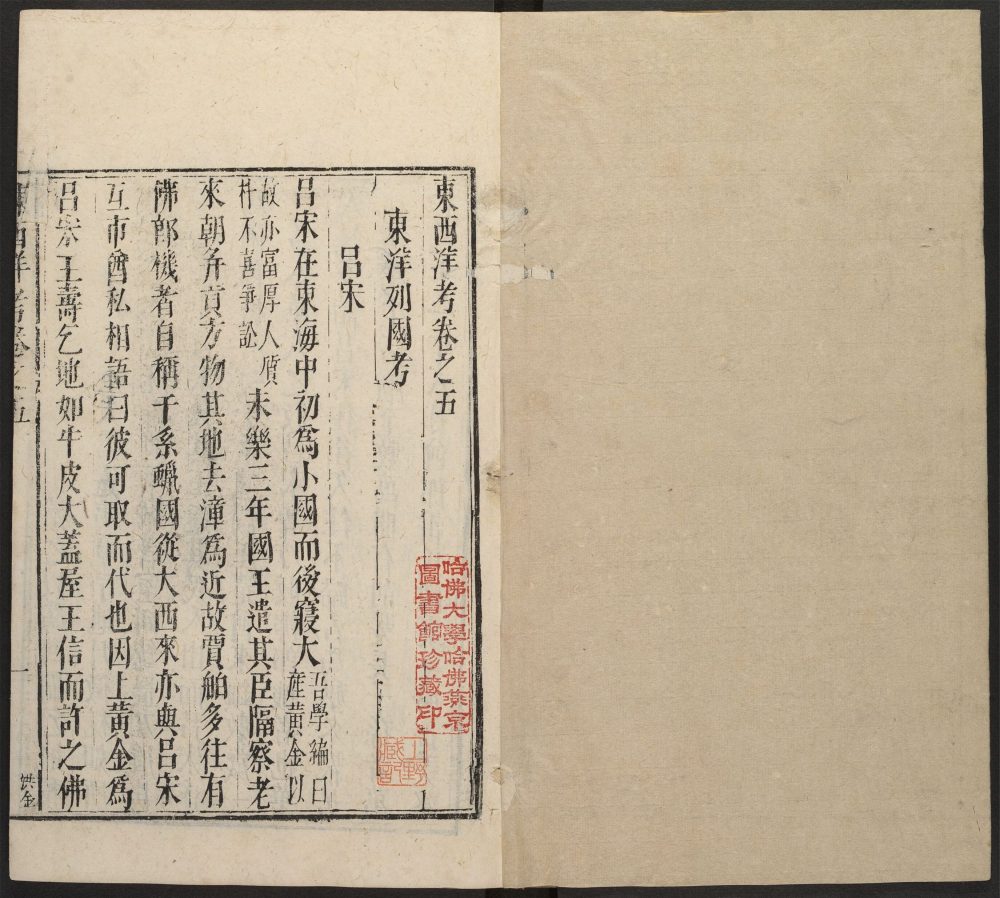 東西洋考卷之五
東洋列國考
呂宋
呂宋在東海中初爲小國而後寖大吾學編曰產黃金以
故亦富厚人質朴不喜爭訟永樂三年國王遣其臣隔察老
來朝并貢方物其地去漳爲近故賈舶多往有
佛郎機者自稱干系蠟國從大西來亦與呂宋
互市酋私相語曰彼可取而代也因上黃金爲
呂宋王壽乞地如牛皮大蓋屋王信而許之佛
西洋考卷之五
一
洪全
哈佛大學哈佛燕京
圖書館珍藏印